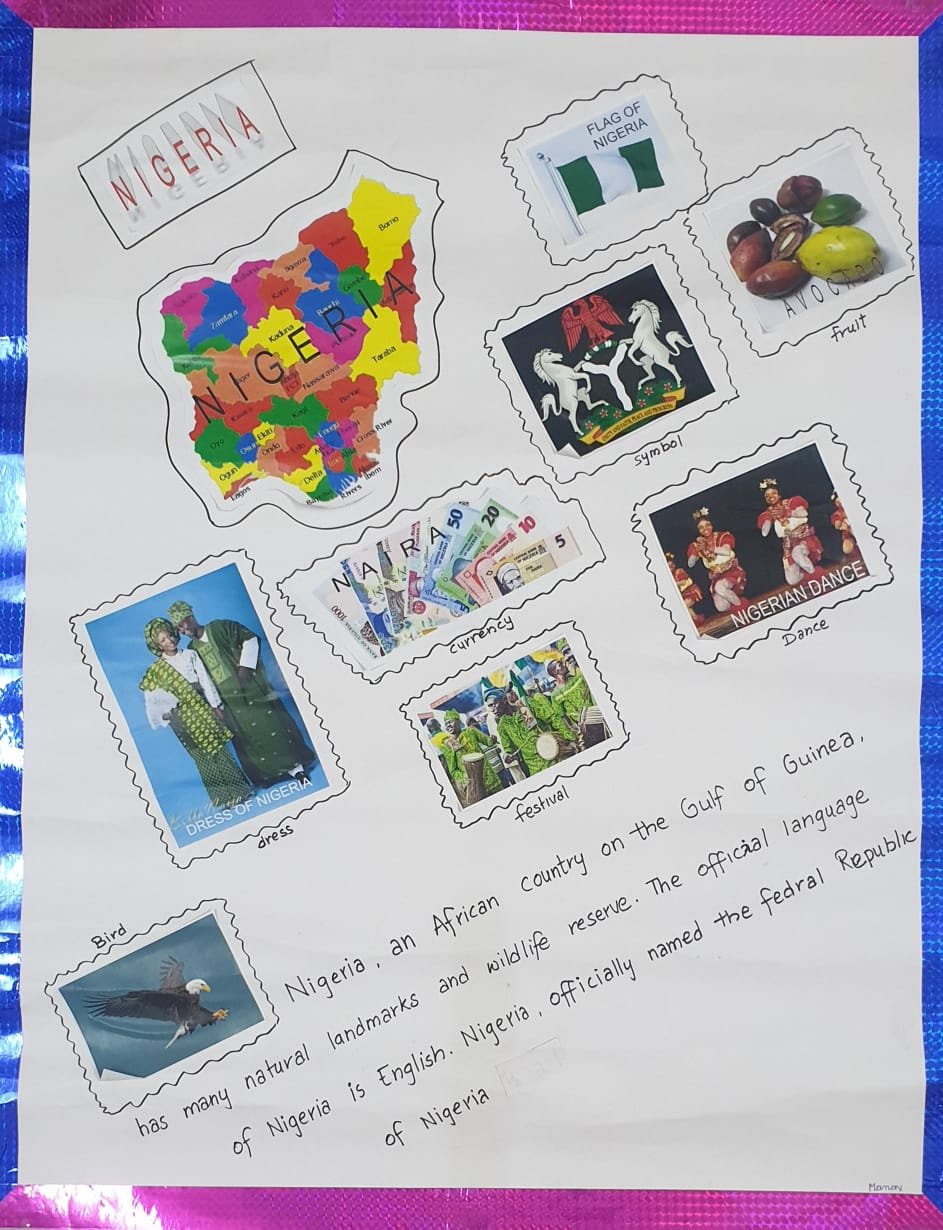 NIGERIA
FLAG OF
NIGERIA
AVOCADO
fruit
Borno
Yobe
Kano
Gombe
Bauchi
Zamfara
Kaduna
Taraba
NIGERIA
Niger
Nassarawa
Benue
Kwara
Kogi
Oyo
Osun
Ekiti
Ondo
Edo
Enugu
Cross River
Ogun
Lagos
Delta
Imo
Rivers
Ibom
UNITY AND FAITH, PEACE AND PROGRESS
symbol
NAIRA
1000
50
20
10
5
currency
NIGERIAN DANCE
Dance
DRESS OF NIGERIA
dress
festival
Bird
Nigeria, an African country on the Gulf of Guinea,
has many natural landmarks and wildlife reserve. The official language
of Nigeria is English. Nigeria, officially named the fedral Republic
of Nigeria
Manav